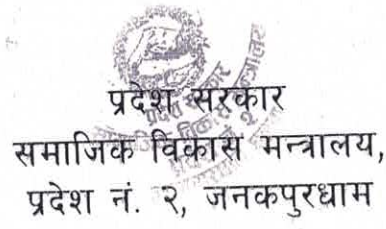 प्रदेश सरकार
समाजिक विकास मन्त्रालय,
प्रदेश नं. २, जनकपुरधाम